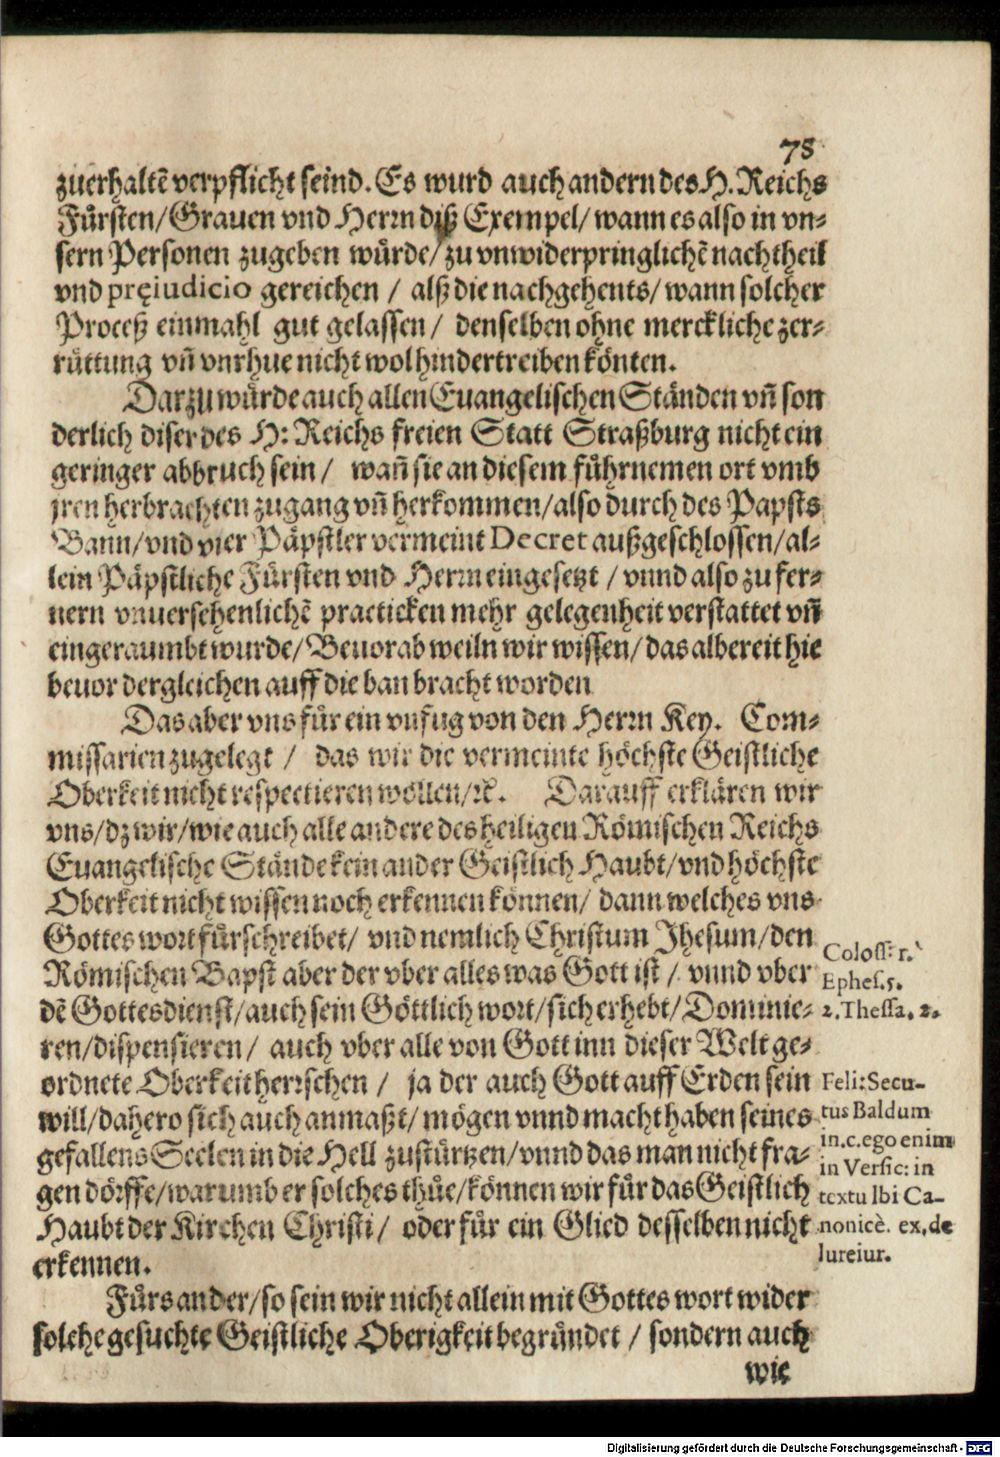 78
zuerhaltẽ verpflicht seind. Es wurd auch andern des H. Reichs
Fürsten/ Grauen vnd Herrn diß Exempel/ wann es also in vn-
sern Personen zugeben würde/ zu vnwiderpringlichẽ nachtheil
vnd pręiudicio gereichen / alß die nachgehents/ wann solcher
Proceß einmahl gut gelassen / denselben ohne merckliche zer-
rüttung vñ vnrhue nicht wol hindertreiben könten.
Darzu würde auch allen Euangelischen Ständen vñ son
derlich diser des H: Reichs freien Statt Straßburg nicht ein
geringer abbruch sein / wañ sie an diesem führnemen ort vmb
jren herbrachten zugang vñ herkommen/ also durch des Papsts
Bann/ vnd vier Päpstler vermeint Decret außgeschlossen/ al-
lein Päpstliche Fürsten vnd Herrn eingesetzt / vnnd also zu fer-
nern vnuersehenlichẽ practicken mehr gelegenheit verstattet vñ
eingeraumbt wurde/ Beuorab weiln wir wissen/ das albereit hie
beuor dergleichen auff die ban bracht worden
Das aber vns für ein vnfug von den Herrn Key. Com-
missarien zugelegt / das wir die vermeinte höchste Geistliche
Oberkeit nicht respectieren wöllen/ ꝛc. Darauff erklären wir
vns/ dz wir/ wie auch alle andere des heiligen Römischen Reichs
Euangelische Stände kein ander Geistlich Haubt/ vnd höchste
Oberkeit nicht wissen noch erkennen können/ dann welches vns
Gottes wort fürschreibet/ vnd nemlich Christum Jhesum/ den
Römischen Bapst aber der vber alles was Gott ist / vnnd vber
dẽ Gottesdienst/ auch sein Göttlich wort/ sich erhebt/ Dominie-
ren/ dispensieren/ auch vber alle von Gott inn dieser Welt ge-
ordnete Oberkeit herrschen / ja der auch Gott auff Erden sein
will/ dahero sich auch anmaßt/ mögen vnnd macht haben seines
gefallens Seelen in die Hell zustürtzen/ vnnd das man nicht fra-
gen dörffe/ warumb er solches thüe/ können wir für das Geistlich
Haubt der Kirchen Christi/ oder für ein Glied desselben nicht
erkennen.
Fürs ander/ so sein wir nicht allein mit Gottes wort wider
solche gesuchte Geistliche Oberigkeit begründet / sondern auch
wie
Coloss: 1.
Ephes. 5.
2. Thessa. 2.
Feli: Secu-
tus Baldum
in. c. ego enim
in Versic: in
textu Ibi Ca-
nonicè. ex, de
Iureiur.
Digitalisierung gefördert durch die Deutsche Forschungsgemeinschaft - DFG